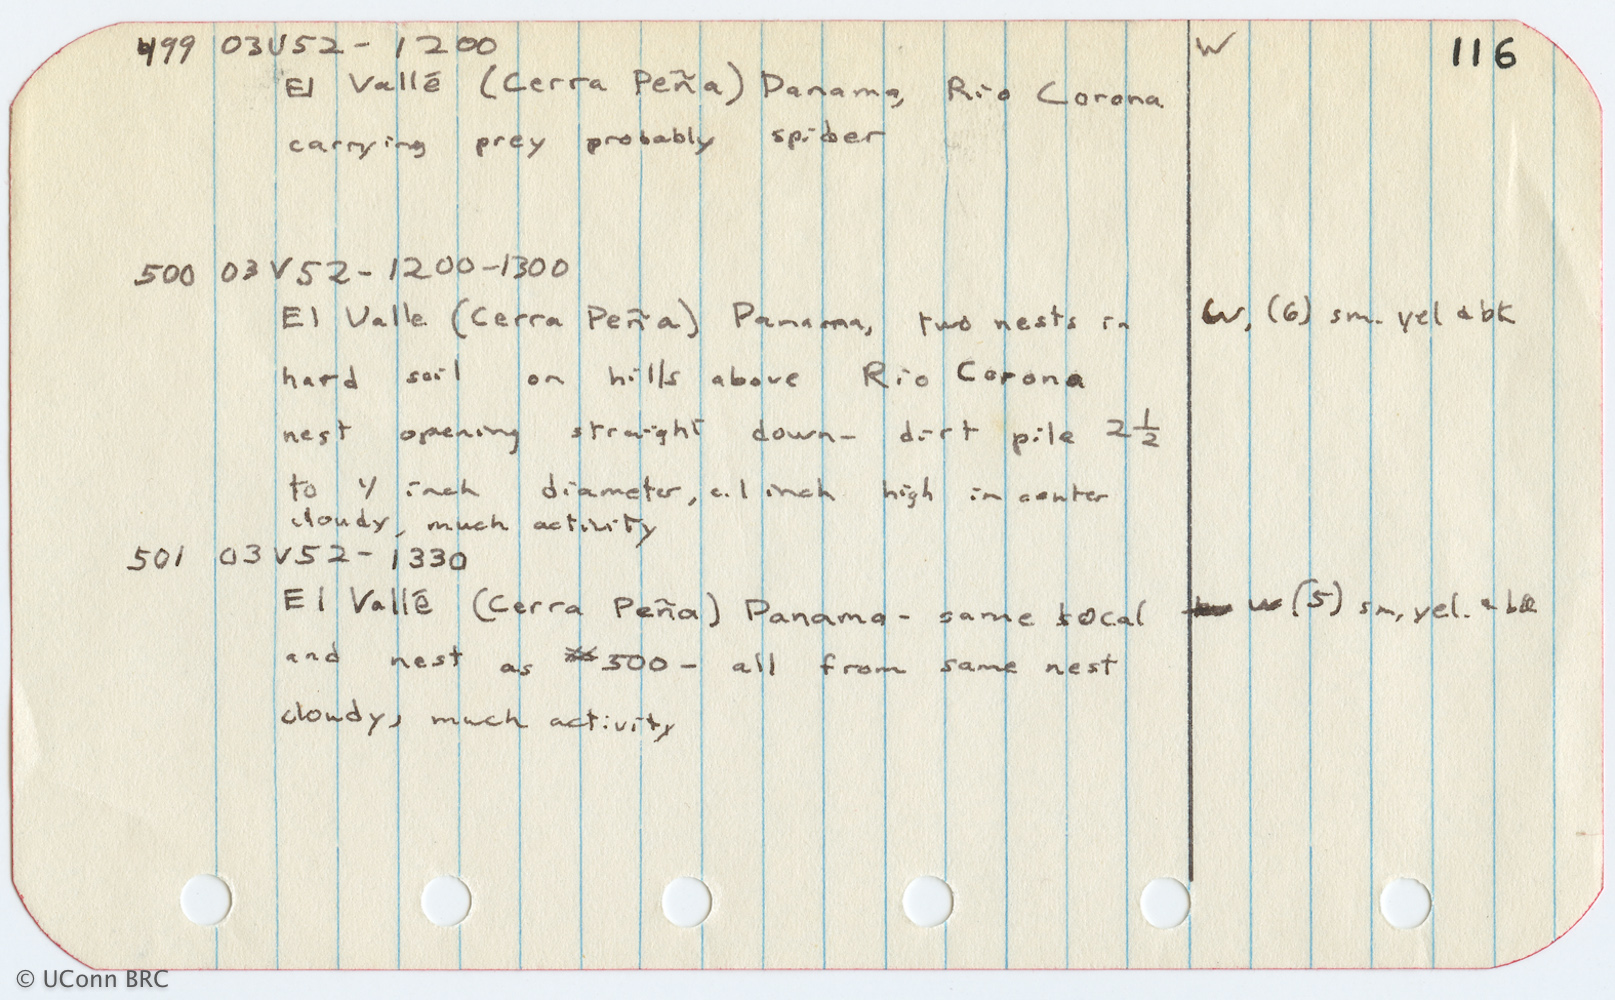 499 03V52 - 1200 W 116
El Vallé (Cerra Peña) Panama, Rio Corona
carrying prey probably spider
500 03V52 - 1200-1300
El Valle (Cerra Peña) Panama, two nests in W, (6) sm. yel & bk
hard soil on hills above Rio Corona
nest opening straight down - dirt pile 2 1/2
to inch diameter, c. 1 inch high in center
cloudy, much activity
501 03V52 - 1330
El Vallé (Cerra Peña) Panama - same local W (5) sm, yel. & bk
and nest as #500 - all from same nest
cloudy, much activity
© UConn BRC